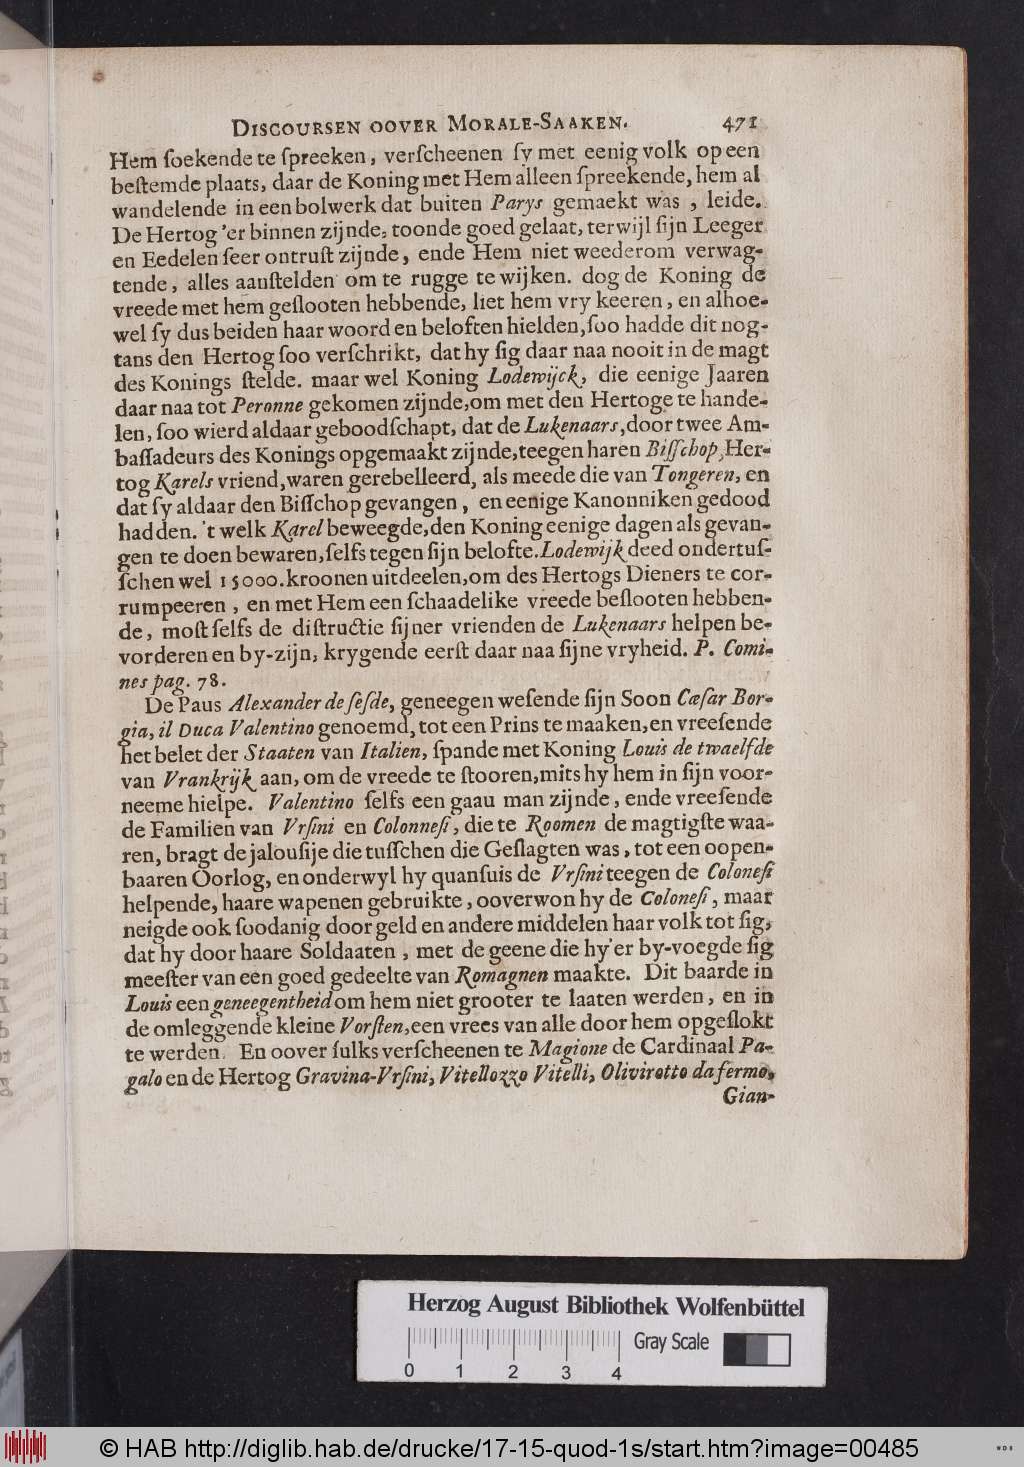 DISCOURSEN OOVER MORALE-SAAKEN. 471
Hem ſoekende te ſpreeken, verſcheenen ſy met eenig volk op een
beſtemde plaats, daar de Koning met Hem alleen ſpreekende, hem al
wandelende in een bolwerk dat buiten Parys gemaekt was, leide.
De Hertog 'er binnen zijnde, toonde goed gelaat, terwijl ſijn Leeger
en Eedelen ſeer ontruſt zijnde, ende Hem niet weederom verwag-
tende, alles aanſtelden om te rugge te wijken. dog de Koning de
vreede met hem geſlooten hebbende, liet hem vry keeren, en alhoe-
wel ſy dus beiden haar woord en beloften hielden, ſoo hadde dit nog-
tans den Hertog ſoo verſchrikt, dat hy ſig daar naa nooit in de magt
des Konings ſtelde. maar wel Koning Lodewijck, die eenige Jaaren
daar naa tot Peronne gekomen zijnde, om met den Hertoge te hande-
len, ſoo wierd aldaar geboodſchapt, dat de Lukenaars, door twee Am-
baſſadeurs des Konings opgemaakt zijnde, teegen haren Biſſchop, Her-
tog Karels vriend, waren gerebelleerd, als meede die van Tongeren, en
dat ſy aldaar den Biſſchop gevangen, en eenige Kanonniken gedood
hadden. 't welk Karel beweegde, den Koning eenige dagen als gevan-
gen te doen bewaren, ſelfs tegen ſijn belofte. Lodewijk deed ondertuſ-
ſchen wel 15000. kroonen uitdeelen, om des Hertogs Dieners te cor-
rumpeeren, en met Hem een ſchaadelike vreede beſlooten hebben-
de, moſt ſelfs de diſtructie ſijner vrienden de Lukenaars helpen be-
vorderen en by-zijn, krygende eerſt daar naa ſijne vryheid. P. Comi-
nes pag. 78.
De Paus Alexander de ſeſde, geneegen weſende ſijn Soon Cæſar Bor-
gia, il Duca Valentino genoemd, tot een Prins te maaken, en vreeſende
het belet der Staaten van Italien, ſpande met Koning Louis de twaelfde
van Vrankrijk aan, om de vreede te ſtooren, mits hy hem in ſijn voor-
neeme hielpe. Valentino ſelfs een gaau man zijnde, ende vreeſende
de Familien van Vrſini en Colonneſi, die te Roomen de magtigſte waa-
ren, bragt de jalouſije die tuſſchen die Geſlagten was, tot een oopen-
baaren Oorlog, en onderwyl hy quanſuis de Vrſini teegen de Coloneſi
helpende, haare wapenen gebruikte, ooverwon hy de Coloneſi, maar
neigde ook ſoodanig door geld en andere middelen haar volk tot ſig,
dat hy door haare Soldaaten, met de geene die hy'er by-voegde ſig
meeſter van een goed gedeelte van Romagnen maakte. Dit baarde in
Louis een geneegentheid om hem niet grooter te laaten werden, en in
de omleggende kleine Vorſten, een vrees van alle door hem opgeſlokt
te werden. En oover ſulks verſcheenen te Magione de Cardinaal Pa-
galo en de Hertog Gravina-Vrſini, Vitellozzo Vitelli, Olivirotto da fermo,
Gian-
Herzog August Bibliothek Wolfenbüttel
Gray Scale
0 1 2 3 4
© HAB http://diglib.hab.de/drucke/17-15-quod-1s/start.htm?image=00485